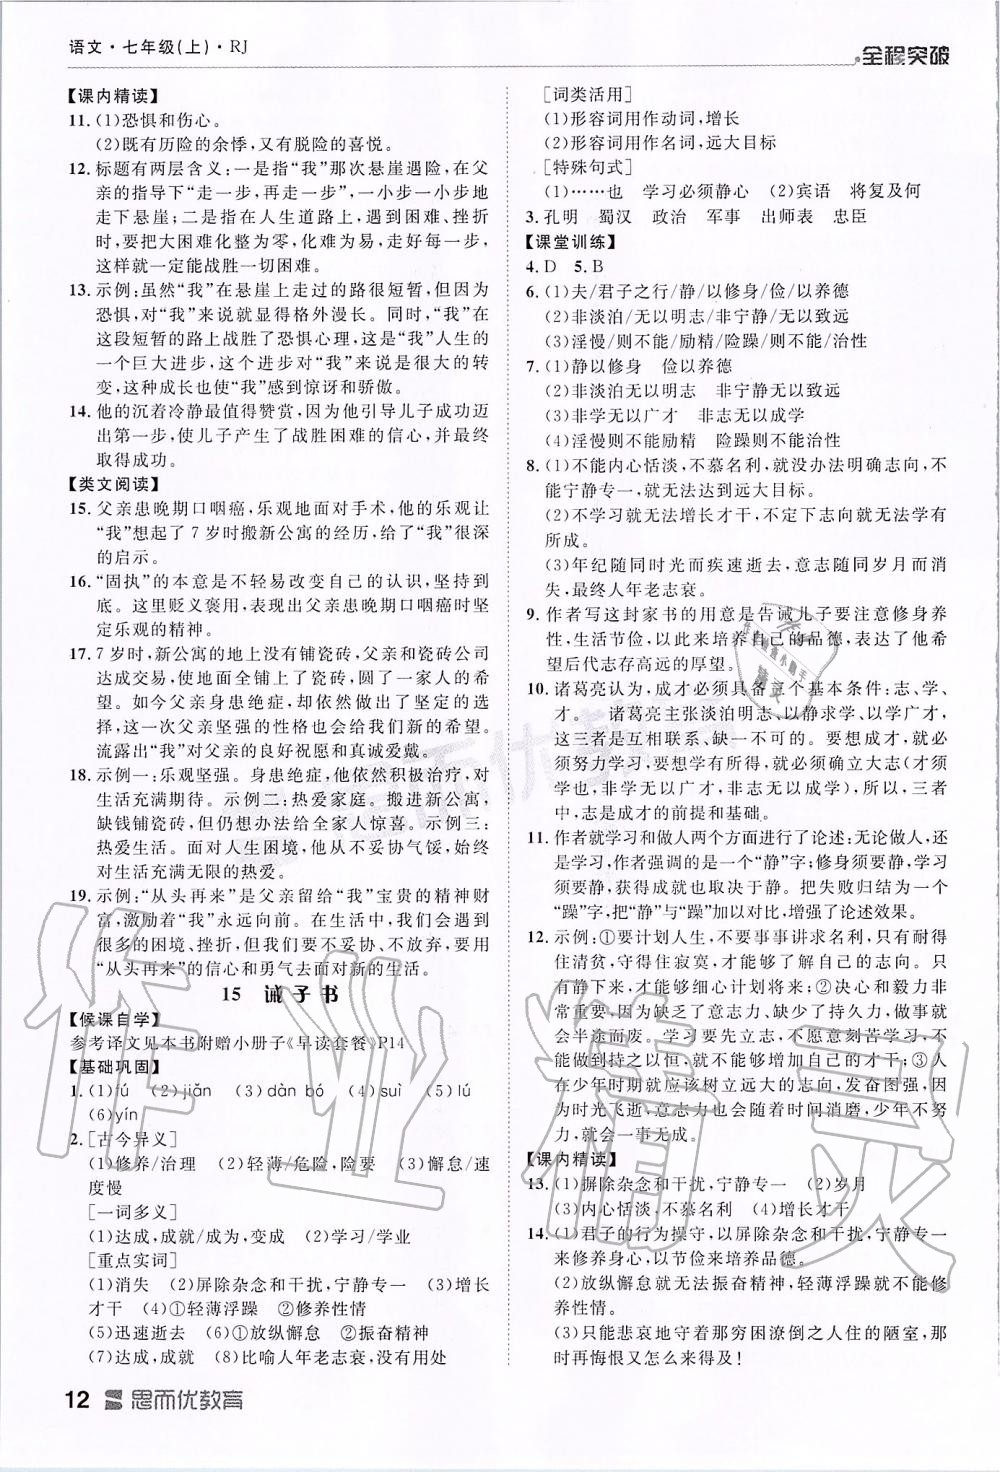 语文·七年级(上)·RJ
全程突破
【课内精读】
11. (1)恐惧和伤心。
(2)既有历险的余悸，又有脱险的喜悦。
12. 标题有两层含义：一是指“我”那次悬崖遇险，在父
亲的指导下“走一步，再走一步”，一小步一小步地
走下悬崖；二是指在人生道路上，遇到困难、挫折
时，要把大困难化整为零，化难为易，走好每一步，
这样就一定能战胜一切困难。
13. 示例：虽然“我”在悬崖上走过的路很短暂，但因为
恐惧，对“我”来说就显得格外漫长。同时，“我”在
这段短暂的路上战胜了恐惧心理，这是“我”人生的
一个巨大进步，这个进步对“我”来说是很大的转
变，这种成长也使“我”感到惊讶和骄傲。
14. 他的沉着冷静最值得赞赏，因为他引导儿子成功迈
出第一步，使儿子产生了战胜困难的信心，并最终
取得成功。
【类文阅读】
15. 父亲患晚期口咽癌，乐观地面对手术，他的乐观让
“我”想起了7岁时搬新公寓的经历，给了“我”很深
的启示。
16. “固执”的本意是不轻易改变自己的认识，坚持到
底。这里贬义褒用，表现出父亲患晚期口咽癌时坚
定乐观的精神。
17. 7岁时，新公寓的地上没有铺瓷砖，父亲和瓷砖公司
达成交易，使地面全铺上了瓷砖，圆了一家人的希
望。如今父亲身患绝症，却仍然选择了坚定的选
择，这一次父亲坚强的性格也会给我们新的希望。
流露出“我”对父亲的良好祝愿和真诚爱戴。
18. 示例一：乐观坚强。身患绝症，他依然积极治疗，对
生活充满期待。示例二：热爱家庭。搬进新公寓，
缺钱铺瓷砖，但仍想办法给全家人惊喜。示例三：
热爱生活。面对人生困境，他从不妥协气馁，始终
对生活充满无限的热爱。
19. 示例：“从头再来”是父亲留给“我”宝贵的精神财
富，激励着“我”永远向前。在生活中，我们会遇到
很多的困境、挫折，但我们要不妥协、不放弃，要用
“从头再来”的信心和勇气去面对新的生活。
15 诫子书
【候课自学】
参考译文见本书附赠小册子《早读套餐》P14
【基础巩固】
1. (1)fú (2)jiǎn (3)dàn bó (4)suì (5)lú
(6)yín
2. [古今异义]
(1)修养/治理 (2)轻薄/危险，险要 (3)懈怠/速
度慢
[一词多义]
(1)达成，成就/成为，变成 (2)学习/学业
[重点实词]
(1)消失 (2)屏除杂念和干扰，宁静专一 (3)增长
才干 (4)①轻薄浮躁 ②修养性情
(5)迅速逝去 (6)①放纵懈怠 ②振奋精神
(7)达成，成就 (8)比喻人年老志衰，没有用处
[词类活用]
(1)形容词用作动词，增长
(2)形容词用作名词，远大目标
[特殊句式]
(1)……也 学习必须静心 (2)宾语 将复及何
3. 孔明 蜀汉 政治 军事 出师表 忠臣
【课堂训练】
4. D 5. B
6. (1)夫/君子之行/静/以修身/俭/以养德
(2)非淡泊/无以明志/非宁静/无以致远
(3)淫慢/则不能/励精/险躁/则不能/治性
7. (1)静以修身 俭以养德
(2)非淡泊无以明志 非宁静无以致远
(3)非学无以广才 非志无以成学
(4)淫慢则不能励精 险躁则不能治性
8. (1)不能内心恬淡，不慕名利，就没办法明确志向，不
能宁静专一，就无法达到远大目标。
(2)不学习就无法增长才干，不定下志向就无法学有
所成。
(3)年纪随同时光而疾速逝去，意志随同岁月而消
失，最终人年老志衰。
9. 作者写这封家书的用意是告诫儿子要注意修身养
性，生活节俭，以此来培养自己的品德，表达了他希
望后代志存高远的厚望。
10. 诸葛亮认为，成才必须具备三个基本条件：志、学、
才。 诸葛亮主张淡泊明志，以静求学、以学广才，
这三者是互相联系、缺一不可的。要想成才，就必
须努力学习；要想学有所得，就必须确立大志(才须
学也，非学无以广才，非志无以成学)，所以，三者
中，志是成才的前提和基础。
11. 作者就学习和做人两个方面进行了论述：无论做人，还
是学习，作者强调的是一个“静”字；修身须要静，学习
须要静，获得成就也取决于静。把失败归纳为一个
“躁”字，把“静”与“躁”加以对比，增强了论述效果。
12. 示例：①要计划人生，不要事事讲求名利，只有耐得
住清贫，守得住寂寞，才能够了解自己的志向。只
有静下来，才能细心计划将来；②决心和毅力非常
重要，因为缺乏了意志力、持久力，做事就会
半途而废。要先立志，不愿意刻苦学习的人，不
能做到持之以恒，不能增长自己的才干；③人
在少年时期就应该树立远大的志向，发奋图强，因
为时光飞逝，意志力也会随着时间消磨，少年不努
力，就会一事无成。
【课内精读】
13. (1)屏除杂念和干扰，宁静专一 (2)岁月
(3)内心恬淡，不慕名利 (4)增长才干
14. (1)君子的行为操守，以屏除杂念和干扰，宁静专一
来修养身心，以节俭来培养品德。
(2)放纵懈怠就无法振奋精神，轻薄浮躁就不能修
养性情。
(3)只能悲哀地守着那穷困潦倒之人住的陋室，那
时再悔恨又怎么来得及！
12 思而优教育
作业精灵